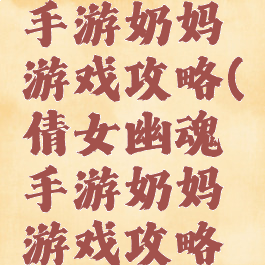 手游奶妈
游戏攻略(
倩女幽魂
手游奶妈
游戏攻略